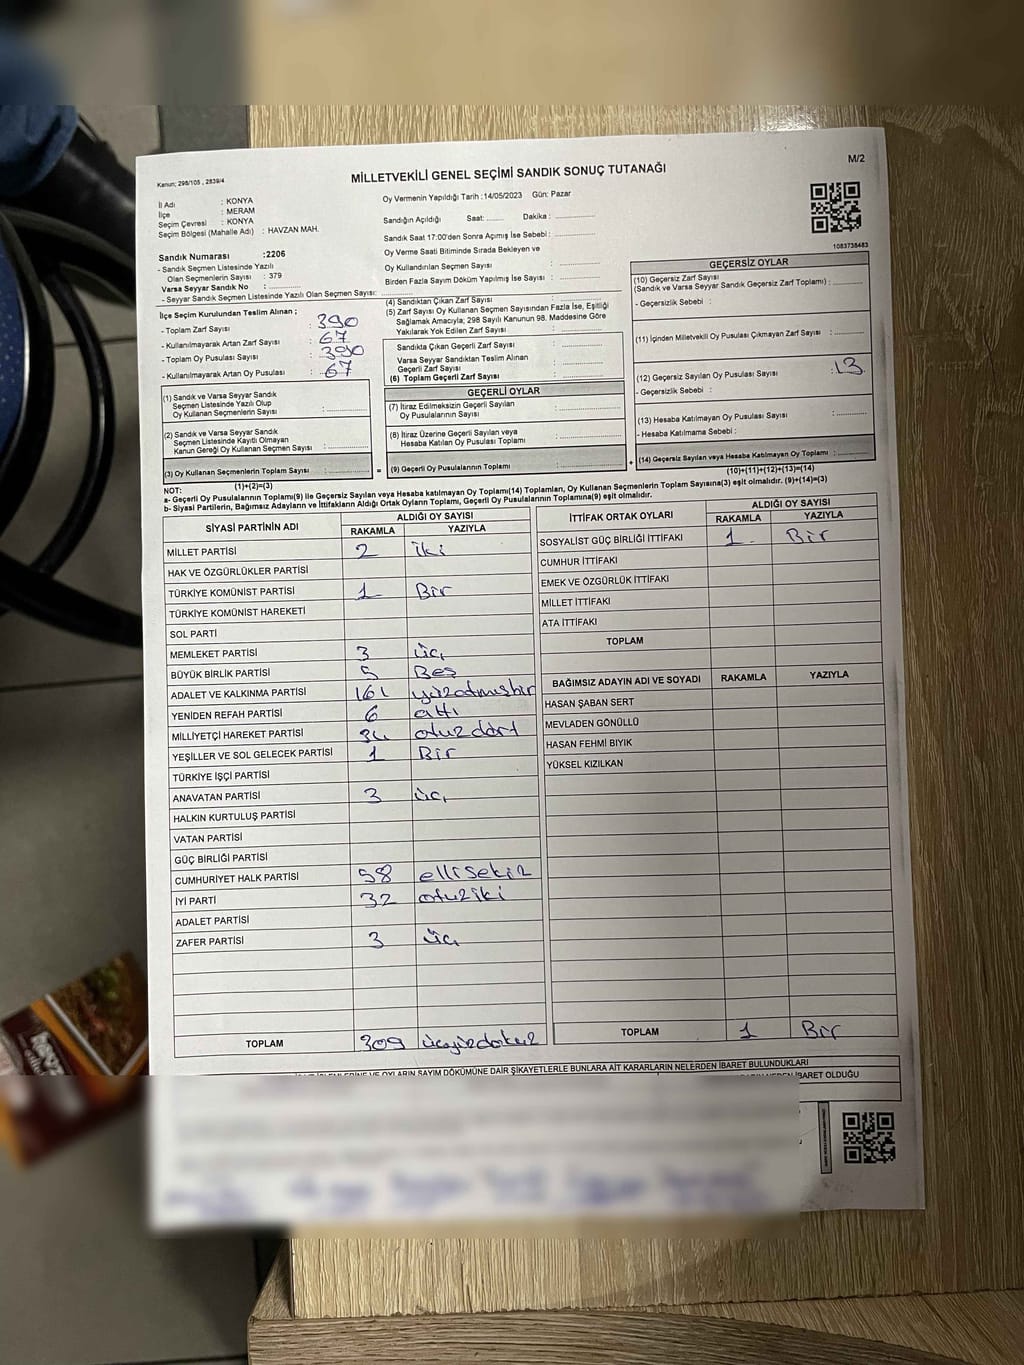 Kanun: 298/105 , 2839/4
MİLLETVEKİLİ GENEL SEÇİMİ SANDIK SONUÇ TUTANAĞI
M/2
İl Adı : KONYA
İlçe : MERAM
Seçim Çevresi : KONYA
Seçim Bölgesi (Mahalle Adı) : HAVZAN MAH.
Sandık Numarası :2206
- Sandık Seçmen Listesinde Yazılı
Olan Seçmenlerin Sayısı : 379
Varsa Seyyar Sandık No : ..............
- Seyyar Sandık Seçmen Listesinde Yazılı Olan Seçmen Sayısı: ..............
Oy Vermenin Yapıldığı Tarih :14/05/2023 Gün: Pazar
Sandığın Açıldığı Saat: ....... Dakika : ..............
Sandık Saat 17:00'den Sonra Açımış İse Sebebi : ..............
Oy Verme Saati Bitiminde Sırada Bekleyen ve
Oy Kullandırılan Seçmen Sayısı : ..............
Birden Fazla Sayım Döküm Yapılmış İse Sayısı : ..............
1083738483
İlçe Seçim Kurulundan Teslim Alınan ;
- Toplam Zarf Sayısı : 390
- Kullanılmayarak Artan Zarf Sayısı : 67
- Toplam Oy Pusulası Sayısı : 390
- Kullanılmayarak Artan Oy Pusulası : 67
(1) Sandık ve Varsa Seyyar Sandık
Seçmen Listesinde Yazılı Olup
Oy Kullanan Seçmenlerin Sayısı : ..............
(2) Sandık ve Varsa Seyyar Sandık
Seçmen Listesinde Kayıtlı Olmayan
Kanun Gereği Oy Kullanan Seçmen Sayısı : ..............
(3) Oy Kullanan Seçmenlerin Toplam Sayısı : ..............
(1)+(2)=(3)
(4) Sandıktan Çıkan Zarf Sayısı : ..............
(5) Zarf Sayısı Oy Kullanan Seçmen Sayısından Fazla İse, Eşitliği
Sağlamak Amacıyla; 298 Sayılı Kanunun 98. Maddesine Göre
Yakılarak Yok Edilen Zarf Sayısı : ..............
Sandıkta Çıkan Geçerli Zarf Sayısı : ..............
Varsa Seyyar Sandıktan Teslim Alınan
Geçerli Zarf Sayısı : ..............
(6) Toplam Geçerli Zarf Sayısı : ..............
GEÇERLİ OYLAR
(7) İtiraz Edilmeksizin Geçerli Sayılan
Oy Pusulalarının Sayısı : ..............
(8) İtiraz Üzerine Geçerli Sayılan veya
Hesaba Katılan Oy Pusulası Toplamı : ..............
= (9) Geçerli Oy Pusulalarının Toplamı : ..............
GEÇERSİZ OYLAR
(10) Geçersiz Zarf Sayısı
(Sandık ve Varsa Seyyar Sandık Geçersiz Zarf Toplamı) : ..............
- Geçersizlik Sebebi :
(11) İçinden Milletvekili Oy Pusulası Çıkmayan Zarf Sayısı : ..............
(12) Geçersiz Sayılan Oy Pusulası Sayısı : 13
- Geçersizlik Sebebi :
(13) Hesaba Katılmayan Oy Pusulası Sayısı : ..............
- Hesaba Katılmama Sebebi :
+ (14) Geçersiz Sayılan veya Hesaba Katılmayan Oy Toplamı : ..............
(10)+(11)+(12)+(13)=(14)
NOT:
a- Geçerli Oy Pusulalarının Toplamı(9) ile Geçersiz Sayılan veya Hesaba katılmayan Oy Toplamı(14) Toplamları, Oy Kullanan Seçmenlerin Toplam Sayısına(3) eşit olmalıdır. (9)+(14)=(3)
b- Siyasi Partilerin, Bağımsız Adayların ve İttifakların Aldığı Ortak Oyların Toplamı, Geçerli Oy Pusulalarının Toplamına(9) eşit olmalıdır.
SİYASİ PARTİNİN ADI ALDIĞI OY SAYISI
RAKAMLA YAZIYLA
MİLLET PARTİSİ 2 iki
HAK VE ÖZGÜRLÜKLER PARTİSİ
TÜRKİYE KOMÜNİST PARTİSİ 1 Bir
TÜRKİYE KOMÜNİST HAREKETİ
SOL PARTİ
MEMLEKET PARTİSİ 3 üç
BÜYÜK BİRLİK PARTİSİ 5 Beş
ADALET VE KALKINMA PARTİSİ 161 yüzatmışbir
YENİDEN REFAH PARTİSİ 6 altı
MİLLİYETÇİ HAREKET PARTİSİ 34 otuzdört
YEŞİLLER VE SOL GELECEK PARTİSİ 1 Bir
TÜRKİYE İŞÇİ PARTİSİ
ANAVATAN PARTİSİ 3 üç
HALKIN KURTULUŞ PARTİSİ
VATAN PARTİSİ
GÜÇ BİRLİĞİ PARTİSİ
CUMHURİYET HALK PARTİSİ 58 ellisekiz
İYİ PARTİ 32 otuziki
ADALET PARTİSİ
ZAFER PARTİSİ 3 üç
TOPLAM 309 üçyüzdokuz
İTTİFAK ORTAK OYLARI ALDIĞI OY SAYISI
RAKAMLA YAZIYLA
SOSYALİST GÜÇ BİRLİĞİ İTTİFAKI 1 Bir
CUMHUR İTTİFAKI
EMEK VE ÖZGÜRLÜK İTTİFAKI
MİLLET İTTİFAKI
ATA İTTİFAKI
TOPLAM
BAĞIMSIZ ADAYIN ADI VE SOYADI RAKAMLA YAZIYLA
HASAN ŞABAN SERT
MEVLADEN GÖNÜLLÜ
HASAN FEHMİ BIYIK
YÜKSEL KIZILKAN
TOPLAM 1 Bir
OYLARIN SAYIM DÖKÜMÜNE DAİR ŞİKAYETLERLE BUNLARA AİT KARARLARIN NELERDEN İBARET BULUNDUKLARI
İBARET OLDUĞU